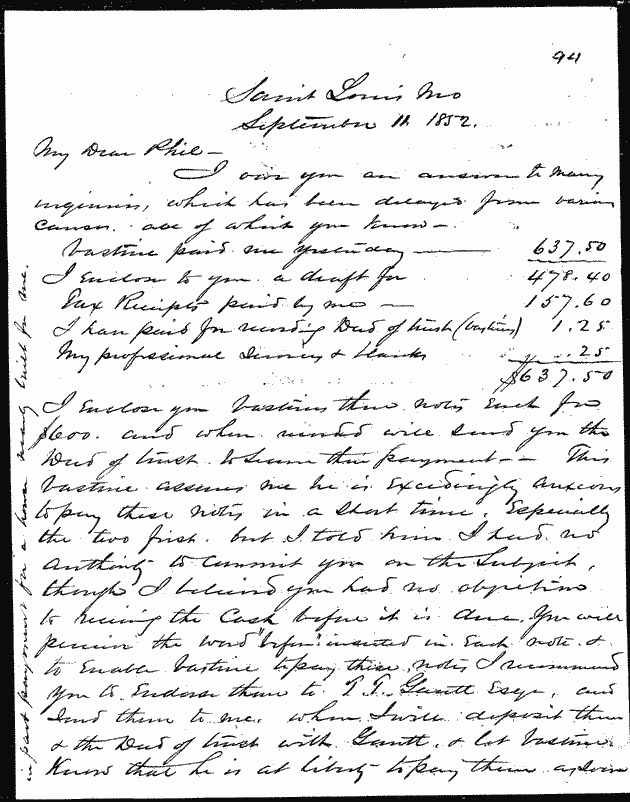 94
Saint Louis Mo
September 11. 1852.
My Dear Phil—
I owe you an answer to many
inquiries, which has been delayed from various
causes. all of which you know—
Vastine paid me yesterday — 637.50
I Enclose to you a draft for 478.40
Tax Receipts paid by me — 157.60
I have paid for recording Deed of trust (Vastines) 1.25
My professional Services & blanks .25
$637.50
I Enclose you Vastines three notes Each for
$600. and when recorded will send you the
Deed of trust to secure their payment— This
Vastine assures me he is Exceedingly anxious
to pay these notes in a short time. Especially
the two first. but I told him I had no
authority to commit you on the subject,
though I believed you had no objection
to receiving the Cash before it is due, You will
perceive the word "before" inserted in Each note &
to Enable Vastine to pay these notes, I recommend
you to Endorse them to T. T. Gantt Esqr, and
send them to me. when I will deposit them
& the Deed of trust with Gantt. & let Vastine
Know that he is at liberty to pay them as soon
in part payment for a house nearly built for me.